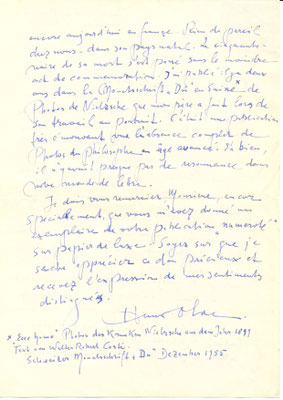 encore aujourd'hui en france. Rien de pareil
chez nous. dans son pays natal. Le cinquante-
naire de sa mort s'est passé sans le moindre
act de commémoration. J'ai publié il y a deux
ans dans la Monatsschrift „Du" en Suisse* des
Photos de Nietzsche que mon père a fait lors de
son travail au portrait. C'était une publication
très émouvante vue l'absence complète de
Photos du Philosophe en âge avancé. Eh bien,
il n'y avait presque pas de résonance dans
notre monde de lettre.
Je dois vous remercier, Monsieur, encore
spécialement, que vous m'avez donné un
exemplaire de votre publication numeroté
sur papier de luxe. Soyez sur que je
sache apprécier ce don précieux et
recevez l'expression de mes sentiments
distingués.
* „Ecce homo" Photos des Kranken Nietzsche aus dem Jahr 1899
Text von Walter Robert Corti.
Schweizer Monatsschrift „Du" Dezember 1955